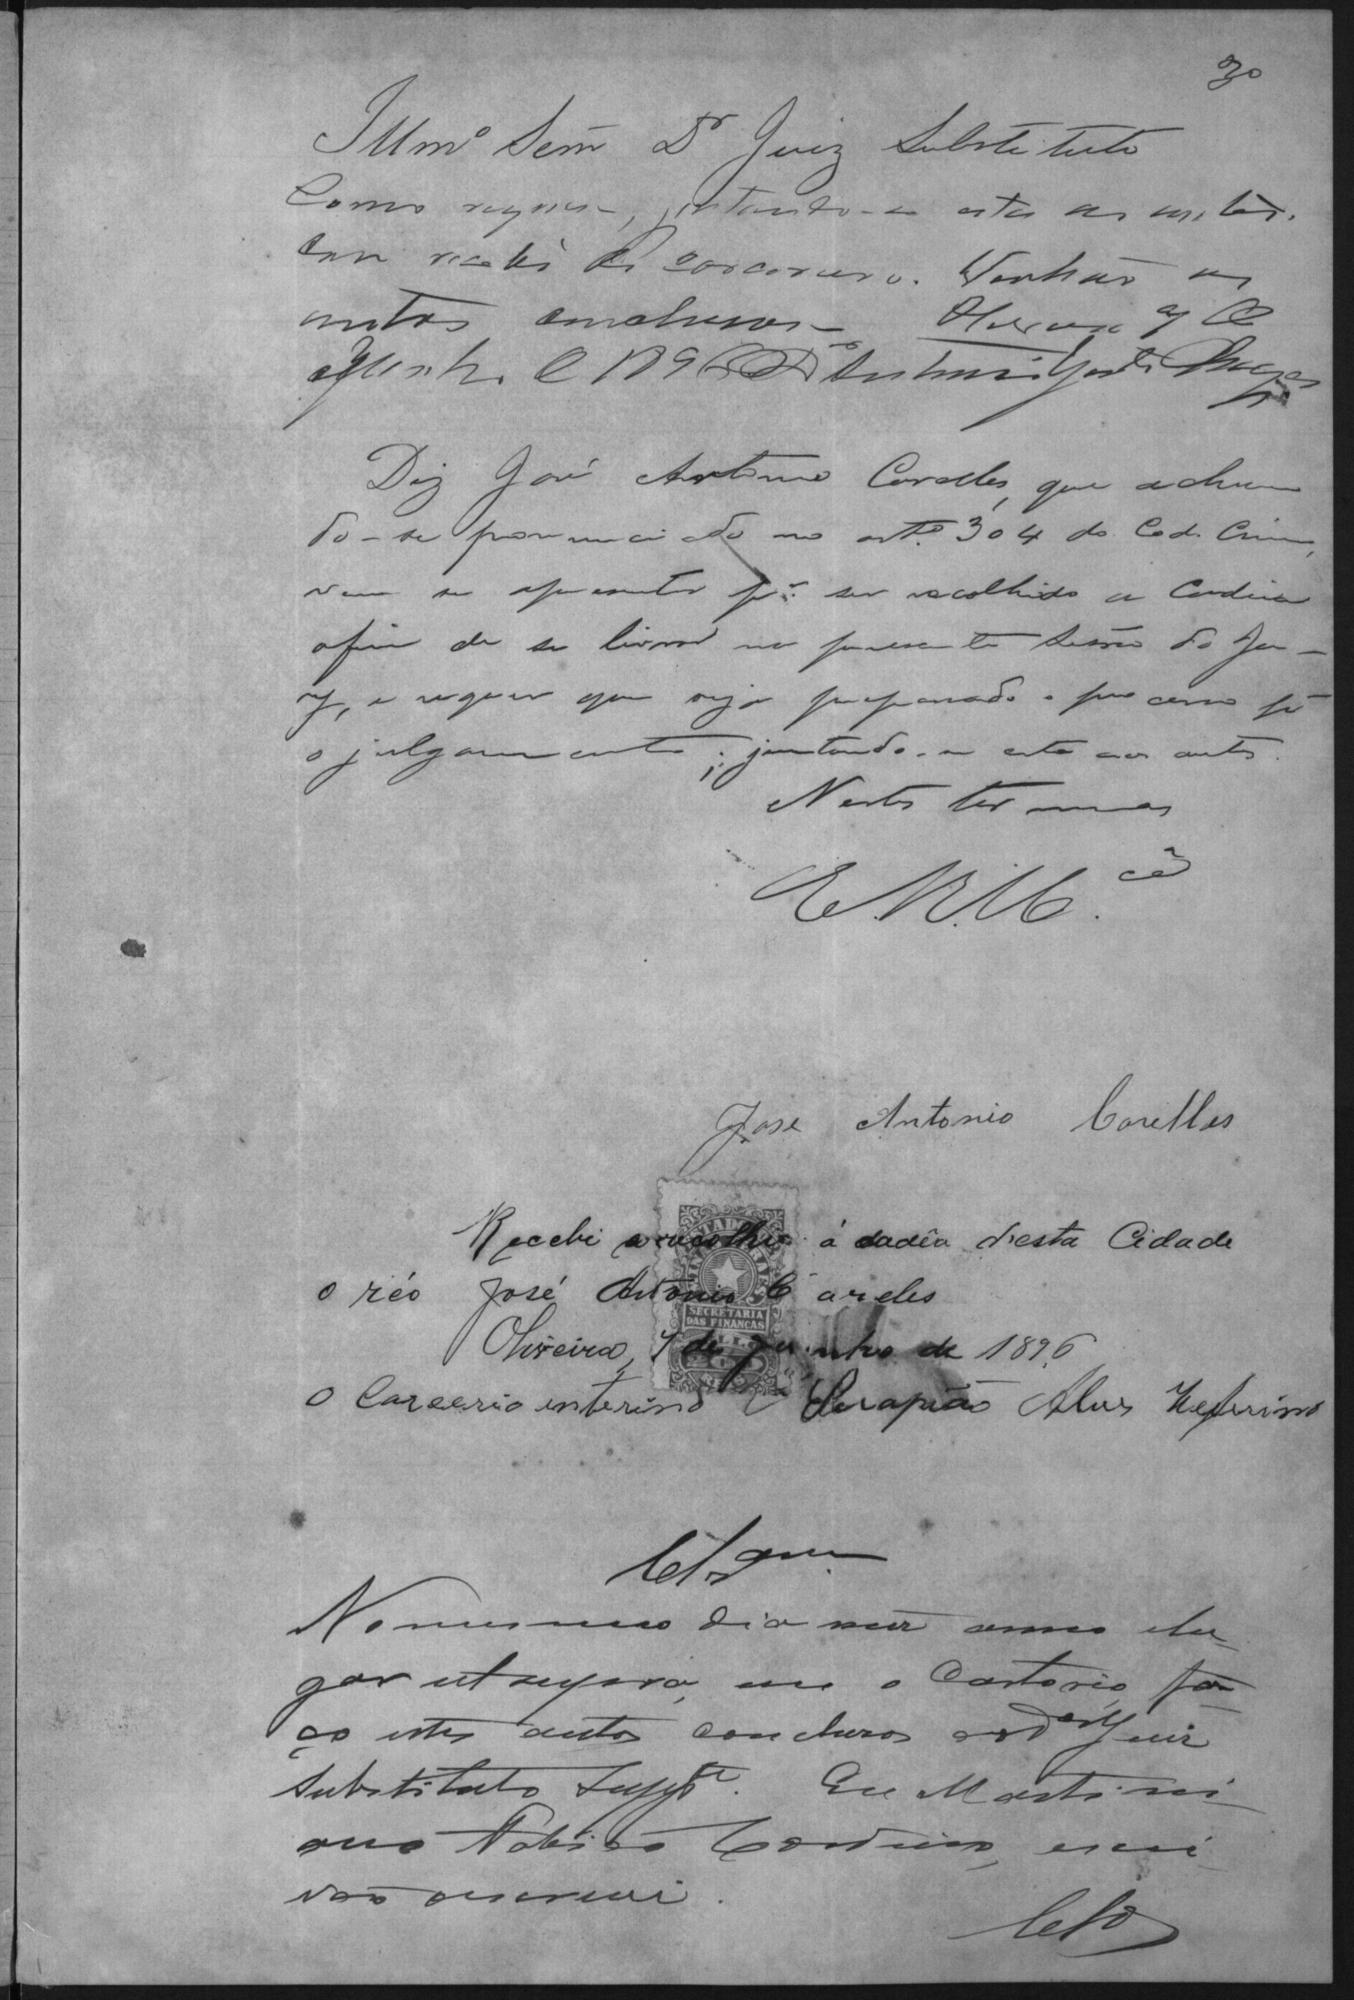 30
Illmº Senr Dr Juiz Substituto
Como requer, juntando-se esta aos autos,
com recibo do carcereiro. Venhão os
autos conclusos. Oliveira 7 de
Junho de 1896 Antonio Justi
Diz José Antonio Carelles, que achan
do-se pronunciado no artº 304 do Cod. Crim,
vem se apresentar pª ser recolhido a Cadeia
afim de se livrar na presente sessão do Ju-
ry, e requer que seja preparado o processo pª
o julgamento; juntando-se esta aos autos.
Nestes termos
E. R. Mcê
José Antonio Carelles
Recebi e recolhi á cadêa d'esta Cidade
o réo José Antonio Careles
Oliveira, 7 de Junho de 1896
O Carcerio interino Serapião Alves Zeferino
SECRETARIA
DAS FINANÇAS
Clsam
No mesmo dia mez anno e lu-
gar retro em o Cartorio, fa-
ço estes autos conclusos ao Dor Juiz
Substituto Suppte. Eu Martini
ano escri
vão o escrevi.
Clso